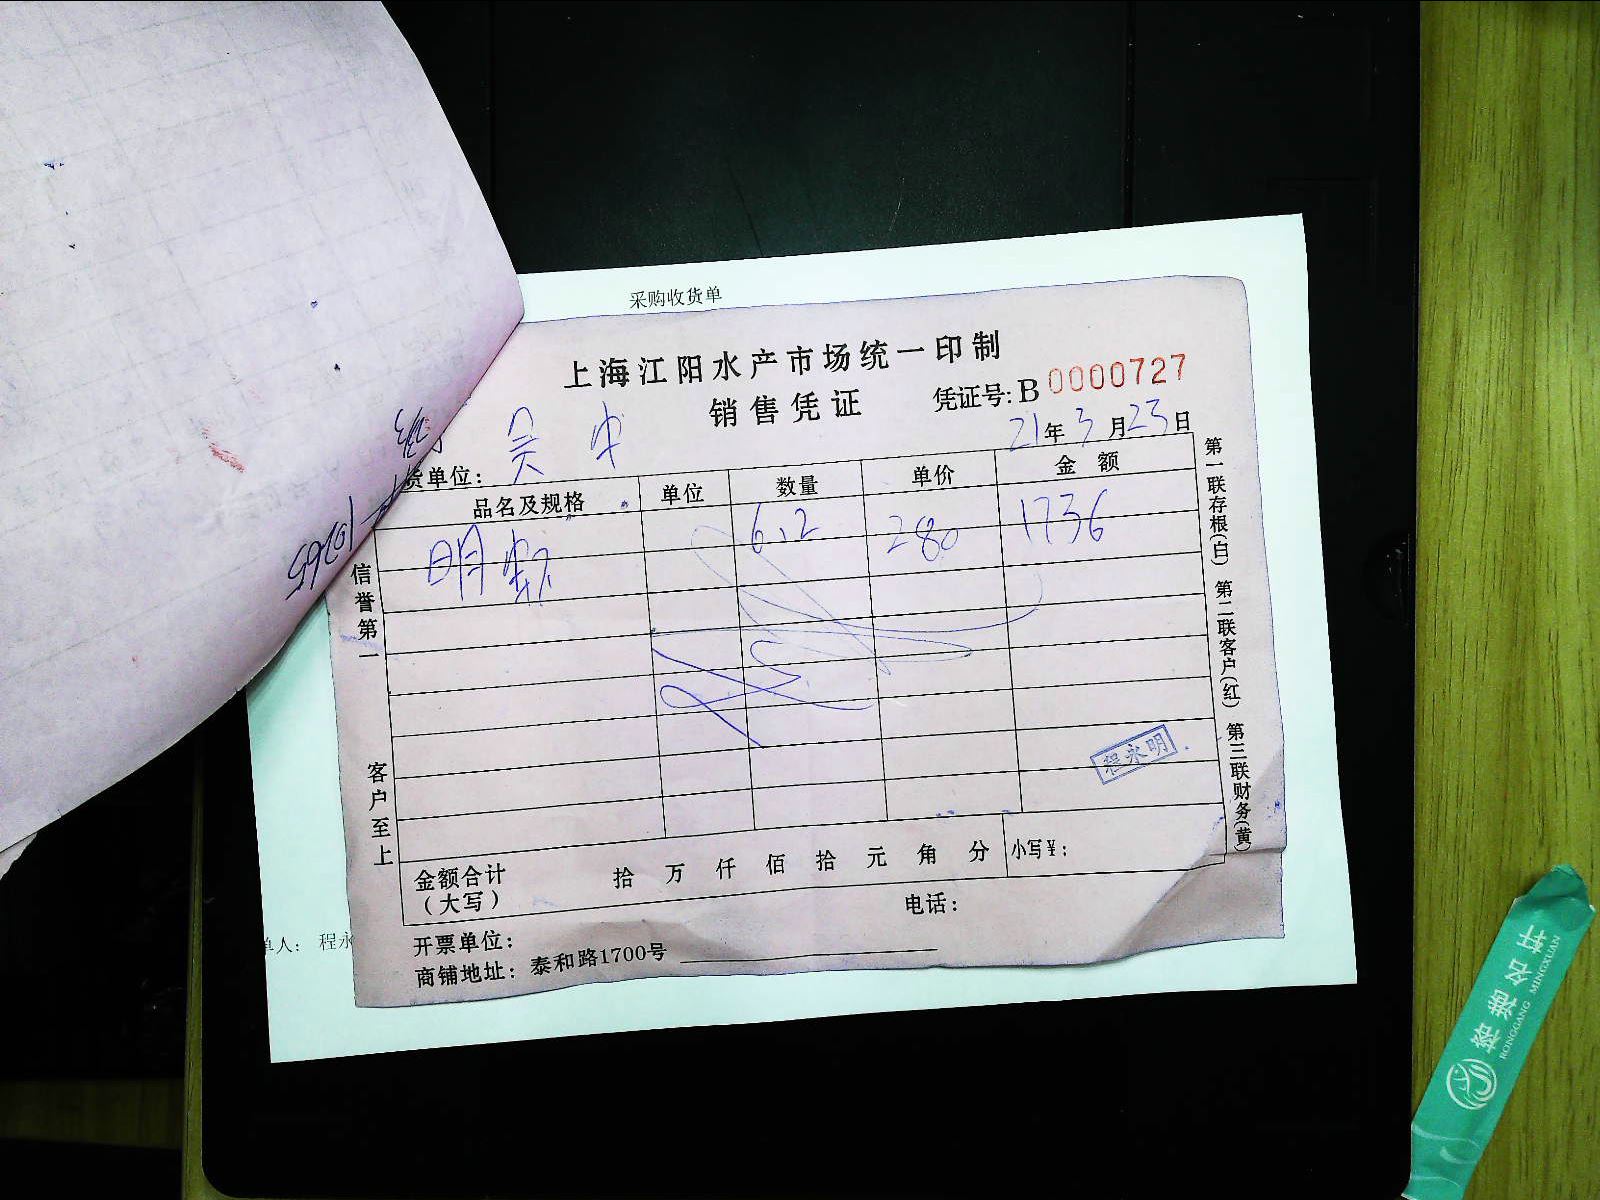 采购收货单
上海江阳水产市场统一印制
销售凭证
凭证号:B 0000727
21年3月23日
货单位: 吴中
品名及规格 单位 数量 单价 金额
明虾 6.2 280 1736
信誉第一
客户至上
第一联存根(白) 第二联客户(红) 第三联财务(黄)
程永明
金额合计
(大写)
拾 万 仟 佰 拾 元 角 分 小写¥:
电话:
开票单位:
商铺地址: 泰和路1700号
单人: 程永
10265
榕港名轩
RONGGANG MINGXUAN